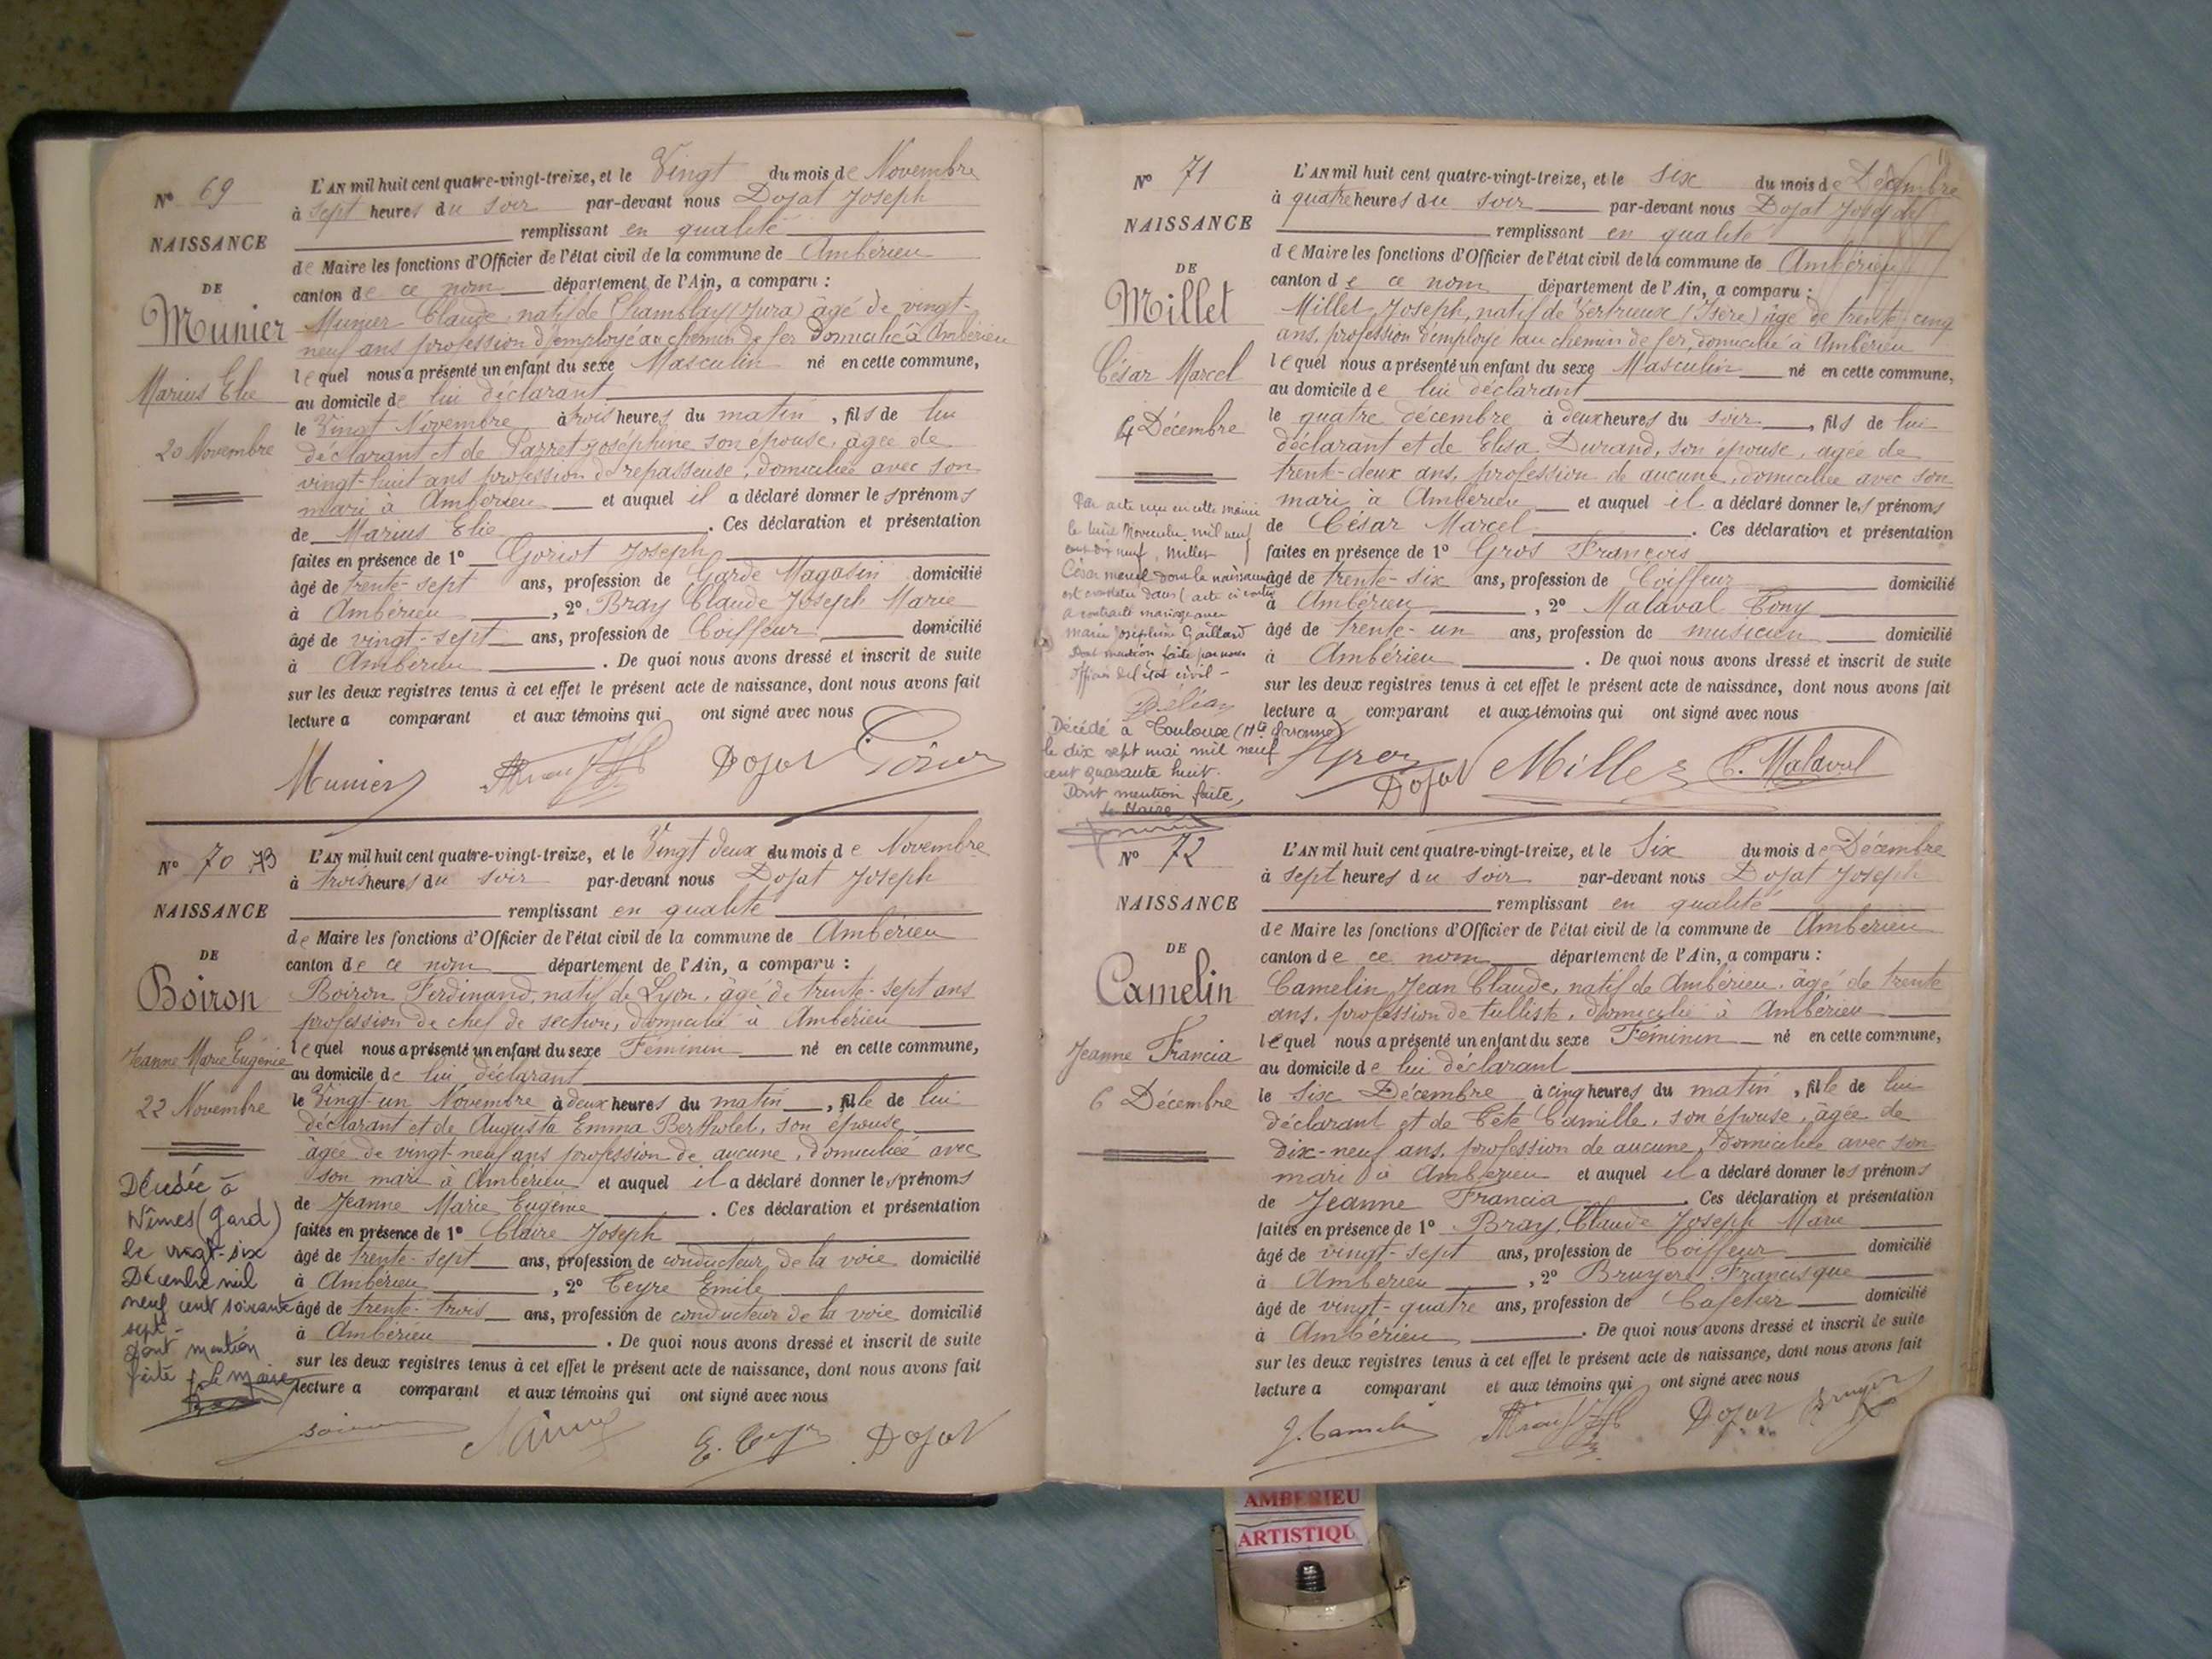 Nº 69
NAISSANCE
DE
Munier
Marius Elie
20 Novembre
L'AN mil huit cent quatre-vingt-treize, et le Vingt du mois de Novembre
à sept heures du soir par-devant nous Dojat Joseph
remplissant en qualité
de Maire les fonctions d'Officier de l'état civil de la commune de Ambérieu
canton de ce nom département de l'Ain, a comparu :
Munier Claude, natif de Chamblay (Jura) âgé de vingt-
neuf ans profession d'employé au chemin de fer Domicilié à Ambérieu
lequel nous a présenté un enfant du sexe Masculin né en cette commune,
au domicile de lui déclarant
le Vingt Novembre à trois heures du matin, fils de lui
déclarant et de Parret Joséphine son épouse, agée de
vingt-huit ans profession de repasseuse, domiciliée avec son
mari à Ambérieu et auquel il a déclaré donner les prénoms
de Marius Elie. Ces déclaration et présentation
faites en présence de 1º Goriot Joseph
âgé de trente-sept ans, profession de Garde Magasin domicilié
à Ambérieu, 2º Bray Claude Joseph Marie
âgé de vingt-sept ans, profession de Coiffeur domicilié
à Ambérieu. De quoi nous avons dressé et inscrit de suite
sur les deux registres tenus à cet effet le présent acte de naissance, dont nous avons fait
lecture a comparant et aux témoins qui ont signé avec nous
Munier Dojat
Nº 70 73
NAISSANCE
DE
Boiron
Jeanne Marie Eugénie
22 Novembre
Décédée à
Nîmes (Gard)
le vingt-six
Décembre mil
neuf cent soixante
sept -
Dont mention
faite p. Le Maire
L'AN mil huit cent quatre-vingt-treize, et le Vingt deux du mois de Novembre
à trois heures du soir par-devant nous Dojat Joseph
remplissant en qualité
de Maire les fonctions d'Officier de l'état civil de la commune de Ambérieu
canton de ce nom département de l'Ain, a comparu :
Boiron Ferdinand, natif de Lyon, âgé de trente-sept ans
profession de chef de section, domicilié à Ambérieu
lequel nous a présenté un enfant du sexe Féminin né en cette commune,
au domicile de lui déclarant
le Vingt un Novembre à deux heures du matin, fille de lui
déclarant et de Augusta Emma Bertholet, son épouse
âgée de vingt-neuf ans profession de aucune, domiciliée avec
son mari à Ambérieu et auquel il a déclaré donner les prénoms
de Jeanne Marie Eugénie. Ces déclaration et présentation
faites en présence de 1º Claire Joseph
âgé de trente-sept ans, profession de conducteur de la voie domicilié
à Ambérieu, 2º Teyre Emile
âgé de trente-trois ans, profession de conducteur de la voie domicilié
à Ambérieu. De quoi nous avons dressé et inscrit de suite
sur les deux registres tenus à cet effet le présent acte de naissance, dont nous avons fait
lecture a comparant et aux témoins qui ont signé avec nous
Dojat
Nº 71
NAISSANCE
DE
Millet
César Marcel
4 Décembre
Par acte reçu en cette mairie
le huit Novembre mil neuf
cent dix neuf, Millet
César Marcel dont la naissance
est constatée dans l'acte ci contre
a contracté mariage avec
Marie Joséphine Gaillard
Dont mention faite par nous
officier de l'état civil -
Décédé à Toulouse (Hte Garonne)
le dix sept mai mil neuf
cent quarante huit.
Dont mention faite,
Le Maire
L'AN mil huit cent quatre-vingt-treize, et le Six du mois de Décembre
à quatre heures du soir par-devant nous Dojat Joseph
remplissant en qualité
de Maire les fonctions d'Officier de l'état civil de la commune de Ambérieu
canton de ce nom département de l'Ain, a comparu :
Millet Joseph, natif de Vertrieux (Isère) âgé de trente cinq
ans, profession d'employé au chemin de fer, domicilié à Ambérieu
lequel nous a présenté un enfant du sexe Masculin né en cette commune,
au domicile de lui déclarant
le quatre décembre à deux heures du soir, fils de lui
déclarant et de Elisa Durand, son épouse, agée de
trent-deux ans, profession de aucune, domiciliée avec son
mari à Ambérieu et auquel il a déclaré donner les prénoms
de César Marcel. Ces déclaration et présentation
faites en présence de 1º Gros François
âgé de trente-six ans, profession de Coiffeur domicilié
à Ambérieu, 2º Malaval Tony
âgé de trente-un ans, profession de musicien domicilié
à Ambérieu. De quoi nous avons dressé et inscrit de suite
sur les deux registres tenus à cet effet le présent acte de naissance, dont nous avons fait
lecture a comparant et aux témoins qui ont signé avec nous
Gros Dojat Millet C. Malaval
Nº 72
NAISSANCE
DE
Camelin
Jeanne Francia
6 Décembre
L'AN mil huit cent quatre-vingt-treize, et le Six du mois de Décembre
à sept heures du soir par-devant nous Dojat Joseph
remplissant en qualité
de Maire les fonctions d'Officier de l'état civil de la commune de Ambérieu
canton de ce nom département de l'Ain, a comparu :
Camelin Jean Claude, natif de Ambérieu, âgé de trente
ans, profession de tulliste, domicilié à Ambérieu
lequel nous a présenté un enfant du sexe Féminin né en cette commune,
au domicile de lui déclarant
le Six Décembre à cinq heures du matin, fille de lui
déclarant et de Tête Camille, son épouse, âgée de
Dix-neuf ans, profession de aucune, domiciliée avec son
mari à Ambérieu et auquel il a déclaré donner les prénoms
de Jeanne Francia. Ces déclaration et présentation
faites en présence de 1º Bray Claude Joseph Marie
âgé de vingt-sept ans, profession de Coiffeur domicilié
à Ambérieu, 2º Bruyere Francisque
âgé de vingt-quatre ans, profession de Cafetier domicilié
à Ambérieu. De quoi nous avons dressé et inscrit de suite
sur les deux registres tenus à cet effet le présent acte de naissance, dont nous avons fait
lecture a comparant et aux témoins qui ont signé avec nous
J. Camelin Dojat Bruyere
AMBERIEU
ARTISTIQU